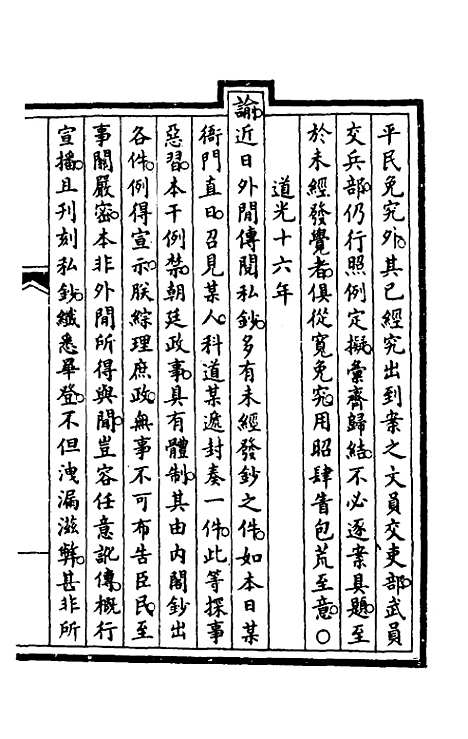 平民免究外其已經究出到案之文員交吏部武員
交兵部仍行照例定擬彙齊歸結不必逐案具題至
於未經發覺者俱從寬免究用昭肆眚包荒至意〇
道光十六年
諭近日外閒傳閱私鈔多有未經發鈔之件如本日某
衙門直日召見某人科道某遞封奏一件此等探事
惡習本干例禁朝廷政事具有體制其由內閣鈔出
各件例得宣示朕綜理庶政無事不可布告臣民至
事關嚴密本非外閒所得與聞豈容任意訛傳概行
宣播且刊刻私鈔纖悉畢登不但洩漏滋弊甚非所